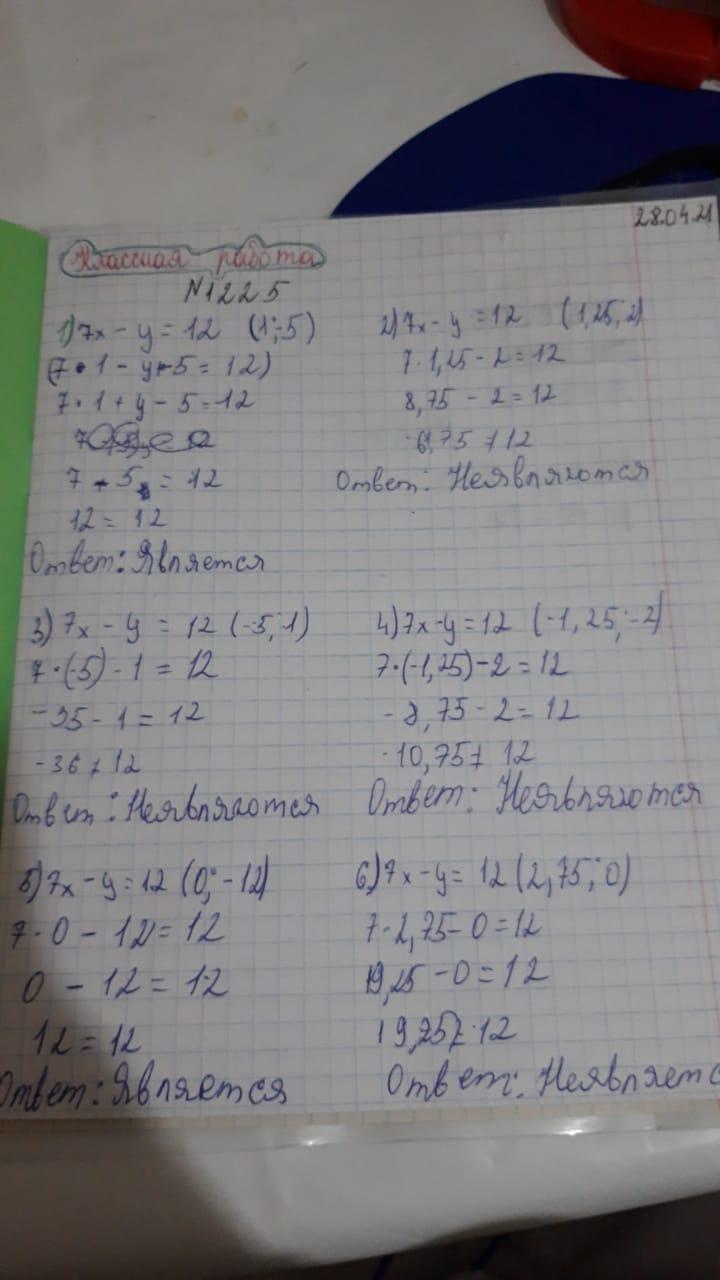 28.04.21
Классная работа
№1225
1) 7x - y = 12 (1; -5)
(7 • 1 - y + 5 = 12)
7 • 1 + y - 5 = 12
7 + 5 = 12
12 = 12
Ответ: Является
2) 7x - y = 12 (1,25; 2)
7 · 1,25 - 2 = 12
8,75 - 2 = 12
6,75 ≠ 12
Ответ: Неявляются
3) 7x - y = 12 (-5; 1)
7 · (-5) - 1 = 12
-35 - 1 = 12
-36 ≠ 12
Ответ: Неявляются
4) 7x - y = 12 (-1,25; -2)
7 · (-1,25) - 2 = 12
-8,75 - 2 = 12
-10,75 ≠ 12
Ответ: Неявляются
5) 7x - y = 12 (0; -12)
7 · 0 - 12 = 12
0 - 12 = 12
12 = 12
Ответ: Является
6) 7x - y = 12 (2,75; 0)
7 · 2,75 - 0 = 12
19,25 - 0 = 12
19,25 ≠ 12
Ответ: Неявляетс